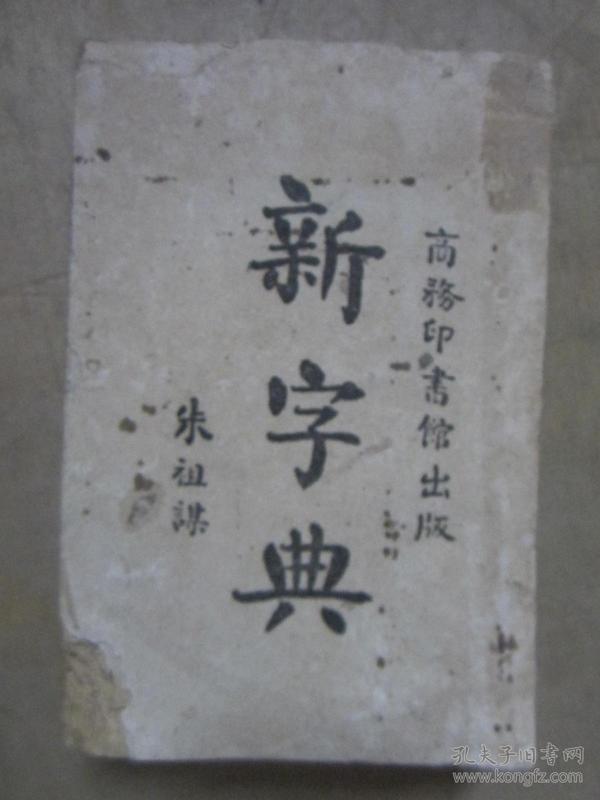 商務印書館出版
新字典
朱祖謀
孔夫子旧书网
www.kongfz.com